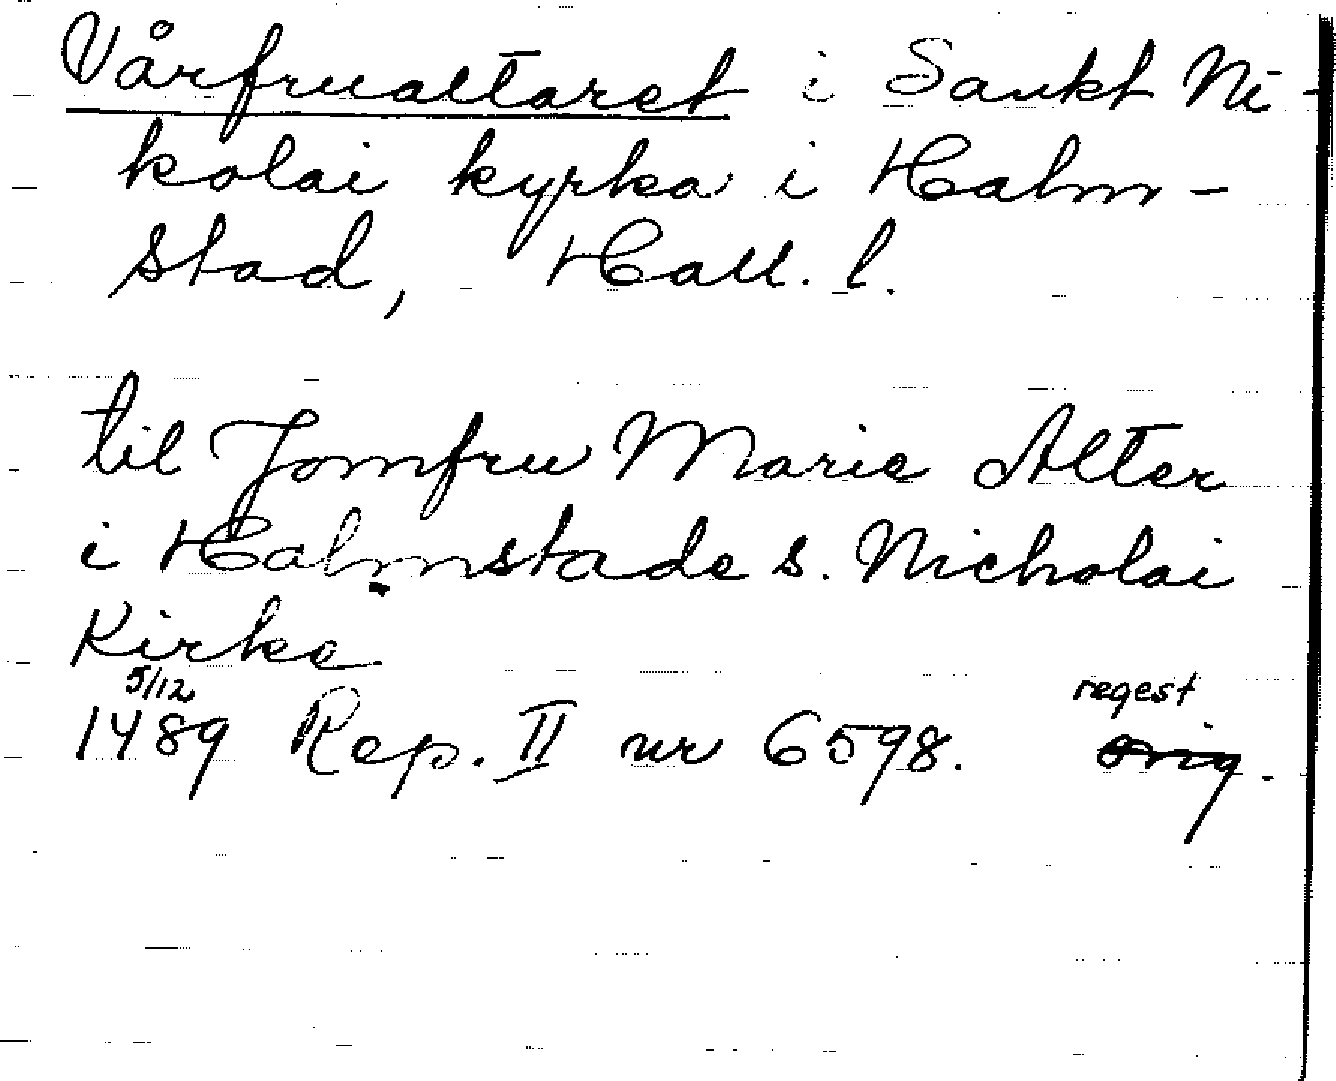 Vårfrualtaret i Sankt Ni-
kolai kyrka i Halm-
stad, Hall. l.
til Jomfru Marie Alter
i Halmstade s. Nicholai
Kirke
5/12 regest
1489 Rep. II nr 6598. orig.